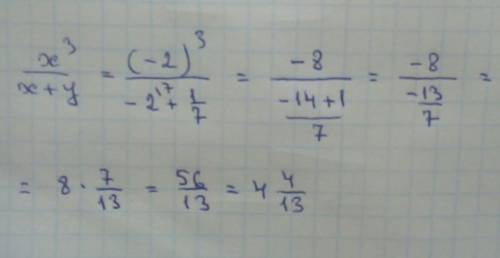 x³/(x+y) = (-2)³/(-2^{\7} + 1/7) = -8/((-14+1)/7) = -8/(-13/7) =
= 8 · 7/13 = 56/13 = 4 4/13